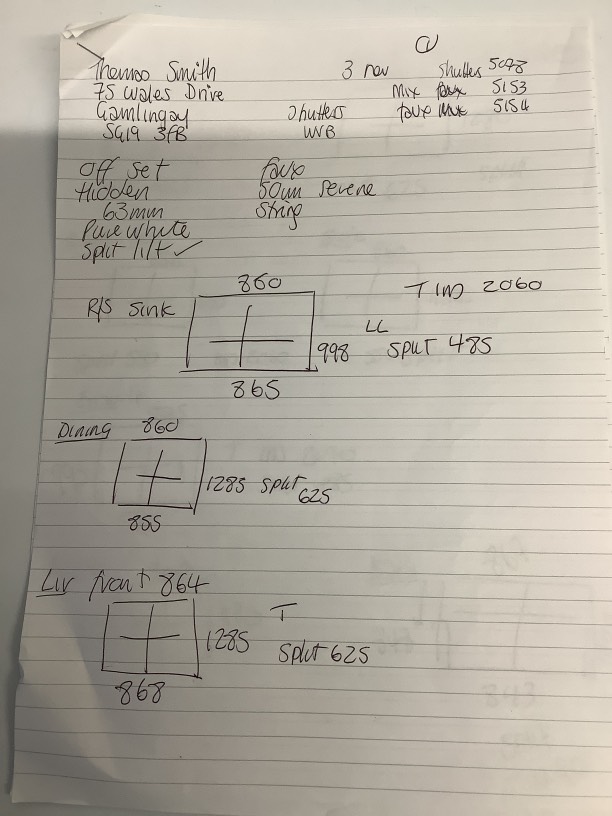 ①
Thomas Smith 3 nov Shutters 5098
75 Wales Drive Mix faux 5153
Gamlingay Shutters faux Mix 5154
SG19 3FB WB
Off set faux
Hidden 50mm Serene
63mm String
Pure white
Split lift ✓
860 T(m) 2060
R/S Sink
LL
998 Split 485
865
Dining 860
1285 Split 625
855
Liv front 864
T
1285 Split 625
868